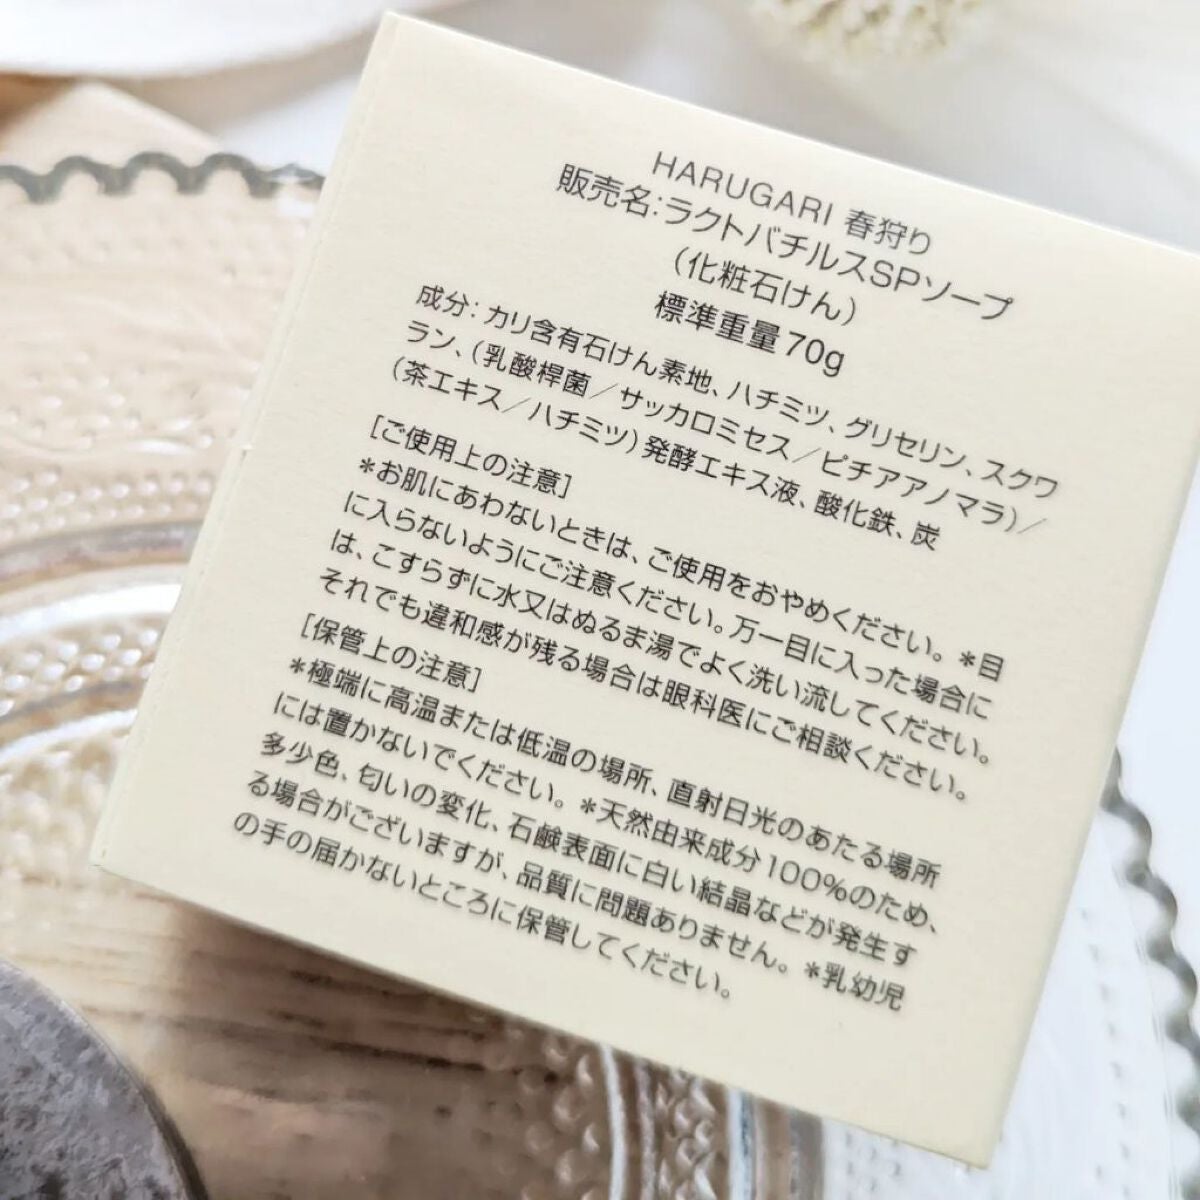 HARUGARI 春狩り
販売名：ラクトバチルスSPソープ
（化粧石けん）
標準重量70g
成分：カリ含有石けん素地、ハチミツ、グリセリン、スクワ
ラン、（乳酸桿菌／サッカロミセス／ピチアアノマラ）／
（茶エキス／ハチミツ）発酵エキス液、酸化鉄、炭
［ご使用上の注意］
＊お肌にあわないときは、ご使用をおやめください。＊目
に入らないようにご注意ください。万一目に入った場合に
は、こすらずに水又はぬるま湯でよく洗い流してください。
それでも違和感が残る場合は眼科医にご相談ください。
［保管上の注意］
＊極端に高温または低温の場所、直射日光のあたる場所
には置かないでください。＊天然由来成分100%のため、
多少色、匂いの変化、石鹸表面に白い結晶などが発生す
る場合がございますが、品質に問題ありません。＊乳幼児
の手の届かないところに保管してください。